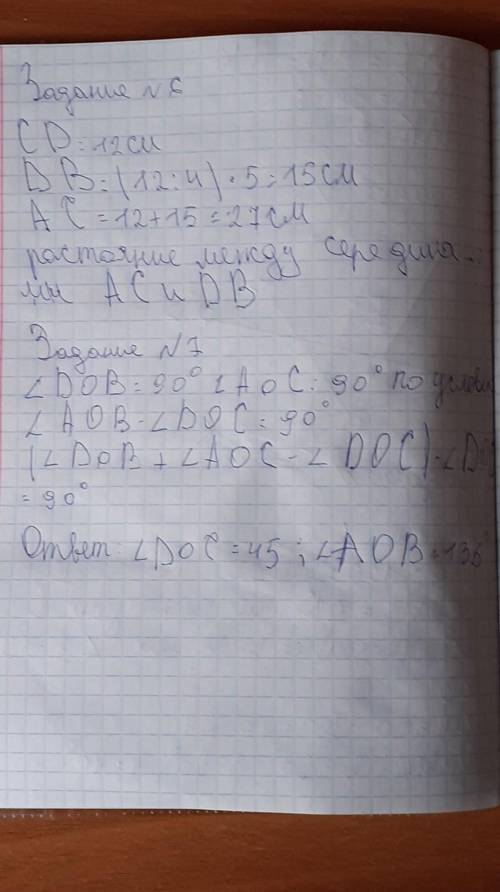 Задание №6
CD=12см
DB=(12:4)·5=15см
AC=12+15=27см
растояние между середина-
ми AC и DB
Задание №7
∠DOB=90° ∠AOC=90° по услови
∠AOB-∠DOC=90°
(∠DOB+∠AOC-∠DOC)-∠DO
=90°
Ответ: ∠DOC=45; ∠AOB=135